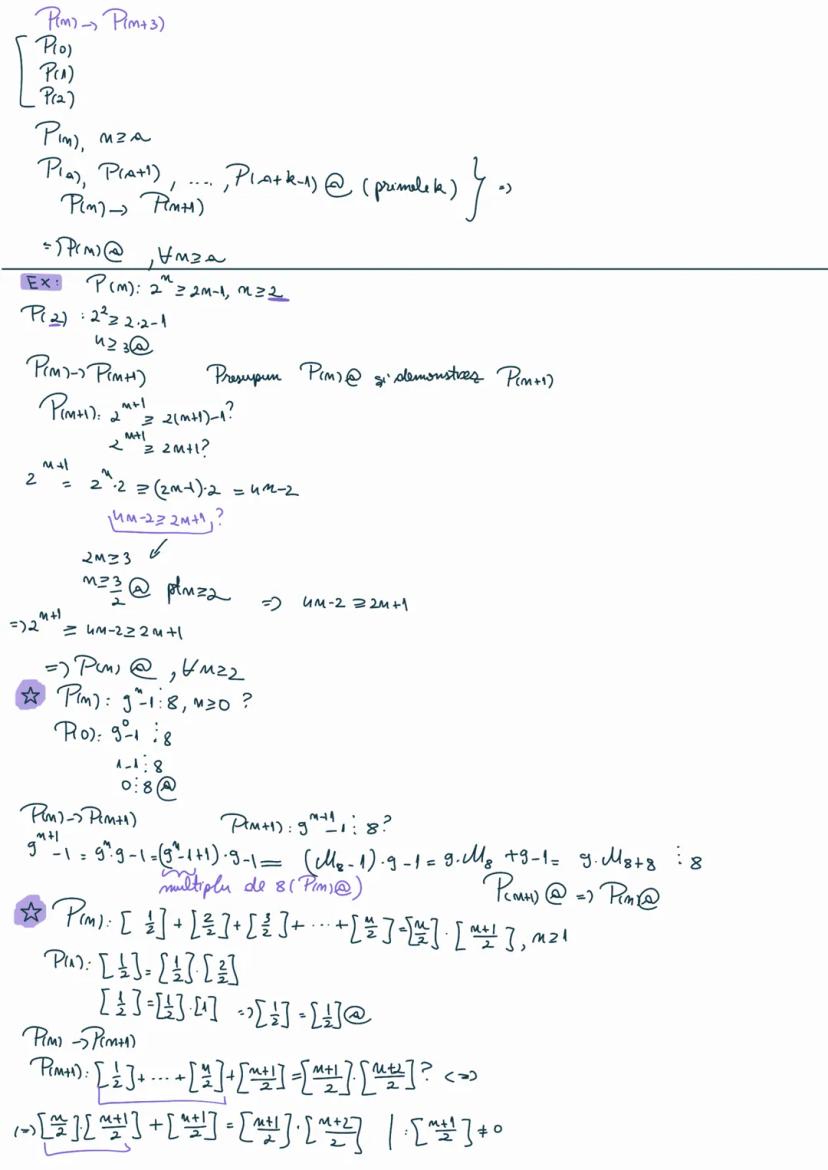 P(n) → P(n+3)
P(0)
P(1)
P(2)
P(n), n≥a
P(a), P(a+1), ..., P(a+k-1) Ⓐ (primele k) } =>
P(n) → P(n+1)
=> P(n) Ⓐ, ∀n≥a
Ex: P(n): 2^n ≥ 2n-1, n≥2
P(2): 2^2 ≥ 2·2-1
4≥3 Ⓐ
P(n)→P(n+1) Presupun P(n) Ⓐ și demonstrez P(n+1)
P(n+1): 2^(n+1) ≥ 2(n+1)-1?
2^(n+1) ≥ 2n+1?
2^(n+1) = 2^n·2 ≥ (2n-1)·2 = 4n-2
4n-2≥2n+1?
2n≥3
n≥3/2 Ⓐ pt n≥2 => 4n-2 ≥ 2n+1
=> 2^(n+1) ≥ 4n-2 ≥ 2n+1
=> P(n) Ⓐ, ∀n≥2
☆ P(n): 9^n-1 ⋮ 8, n≥0 ?
P(0): 9^0-1 ⋮ 8
1-1 ⋮ 8
0 ⋮ 8 Ⓐ
P(n)→P(n+1) P(n+1): 9^(n+1)-1 ⋮ 8?
9^(n+1)-1 = 9^n·9-1 = (9^n-1+1)·9-1 = (M8-1)·9-1 = 9·M8+9-1 = 9·M8+8 ⋮ 8
multiplu de 8 (P(n) Ⓐ) P(n+1) Ⓐ => P(n) Ⓐ
☆ P(n): [1/2]+[2/2]+[3/2]+...+[n/2]=[n/2]·[(n+1)/2], n≥1
P(1): [1/2]=[1/2]·[2/2]
[1/2]=[1/2]·[1] => [1/2]=[1/2] Ⓐ
P(n)→P(n+1)
P(n+1): [1/2]+...+[n/2]+[(n+1)/2]=[(n+1)/2]·[(n+2)/2]? <=>
(=>[n/2]·[(n+1)/2]+[(n+1)/2]=[(n+1)/2]·[(n+2)/2] | :[(n+1)/2]≠0